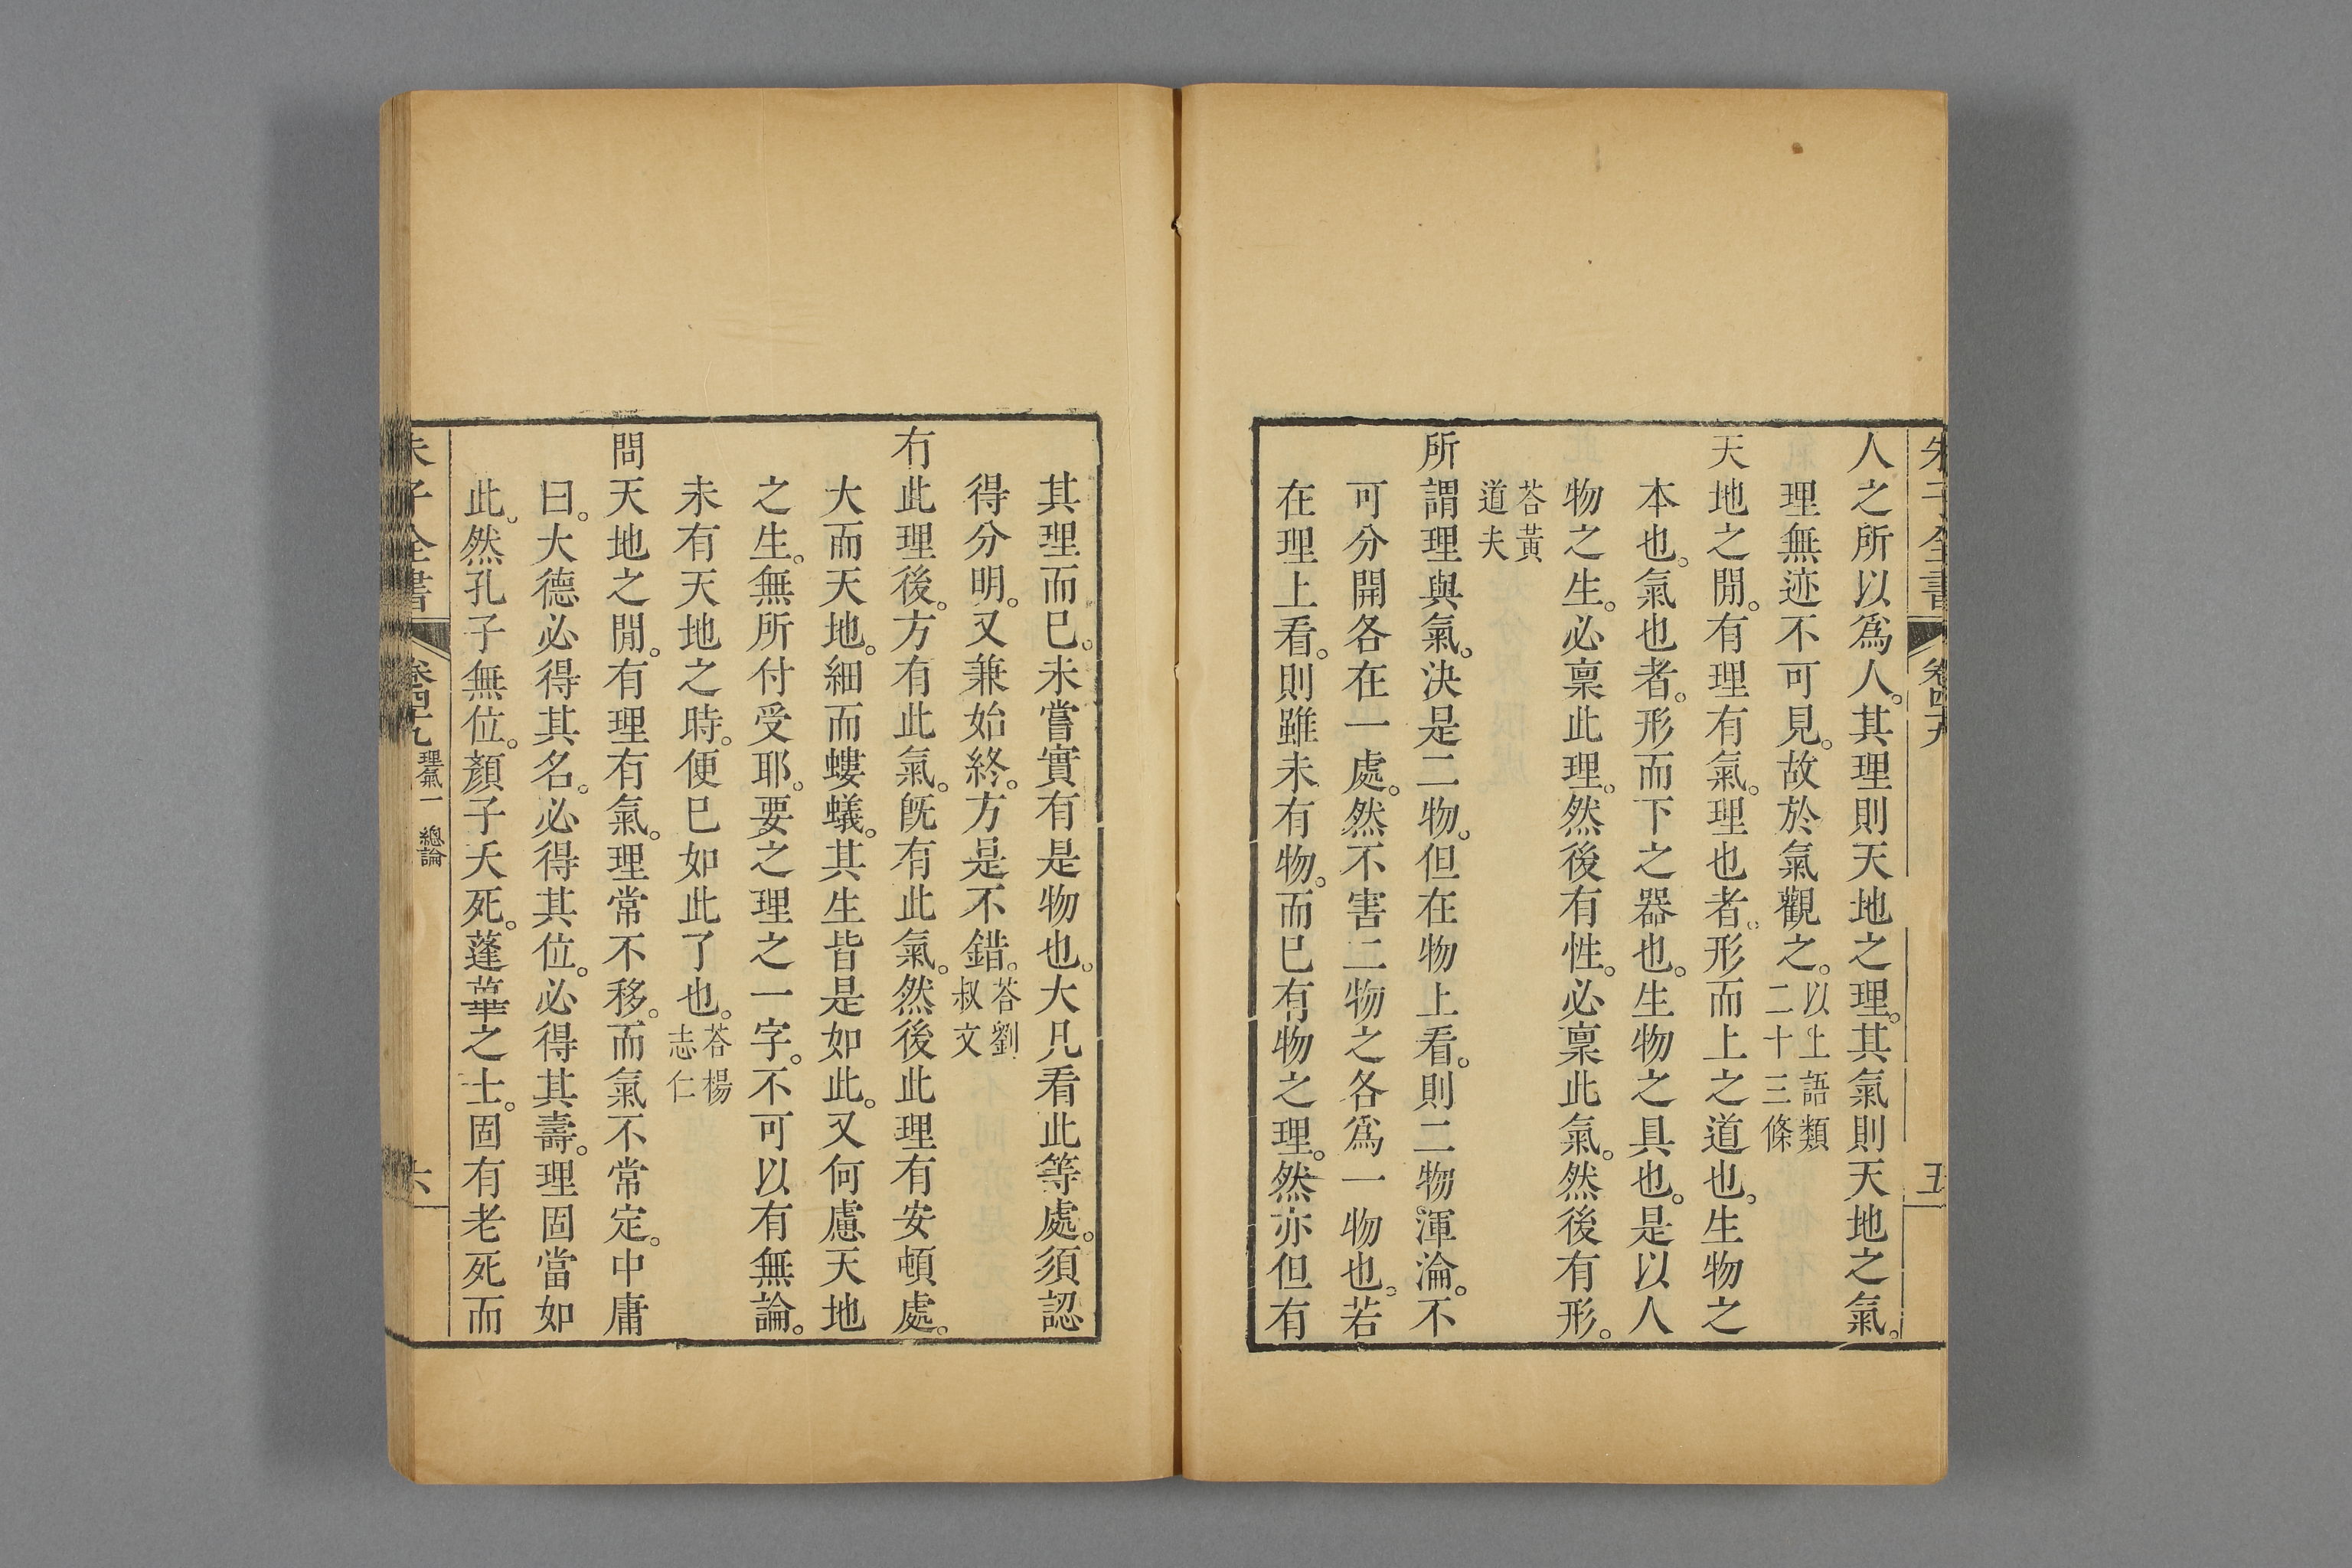 朱子全書 卷四十九 五
人之所以爲人。其理則天地之理。其氣則天地之氣。
理無迹不可見。故於氣觀之。以上語類
二十三條
天地之閒。有理有氣。理也者。形而上之道也。生物之
本也。氣也者。形而下之器也。生物之具也。是以人
物之生。必稟此理。然後有性。必稟此氣。然後有形。
荅黃
道夫
所謂理與氣。決是二物。但在物上看。則二物渾淪。不
可分開各在一處。然不害二物之各爲一物也。若
在理上看。則雖未有物。而已有物之理。然亦但有
其理而已。未嘗實有是物也。大凡看此等處。須認
得分明。又兼始終。方是不錯。荅劉
叔文
冇此理後。方有此氣。旣有此氣。然後此理有安頓處。
大而天地。細而螻蟻。其生皆是如此。又何慮天地
之生。無所付受耶。要之理之一字。不可以有無論。
未有天地之時。便已如此了也。荅楊
志仁
問天地之閒。有理有氣。理常不移。而氣不常定。中庸
曰。大德必得其名。必得其位。必得其壽。理固當如
此。然孔子無位。顏子夭死。蓬蓽之士。固有老死而
朱子全書 卷四十九 理氣一 總論 六